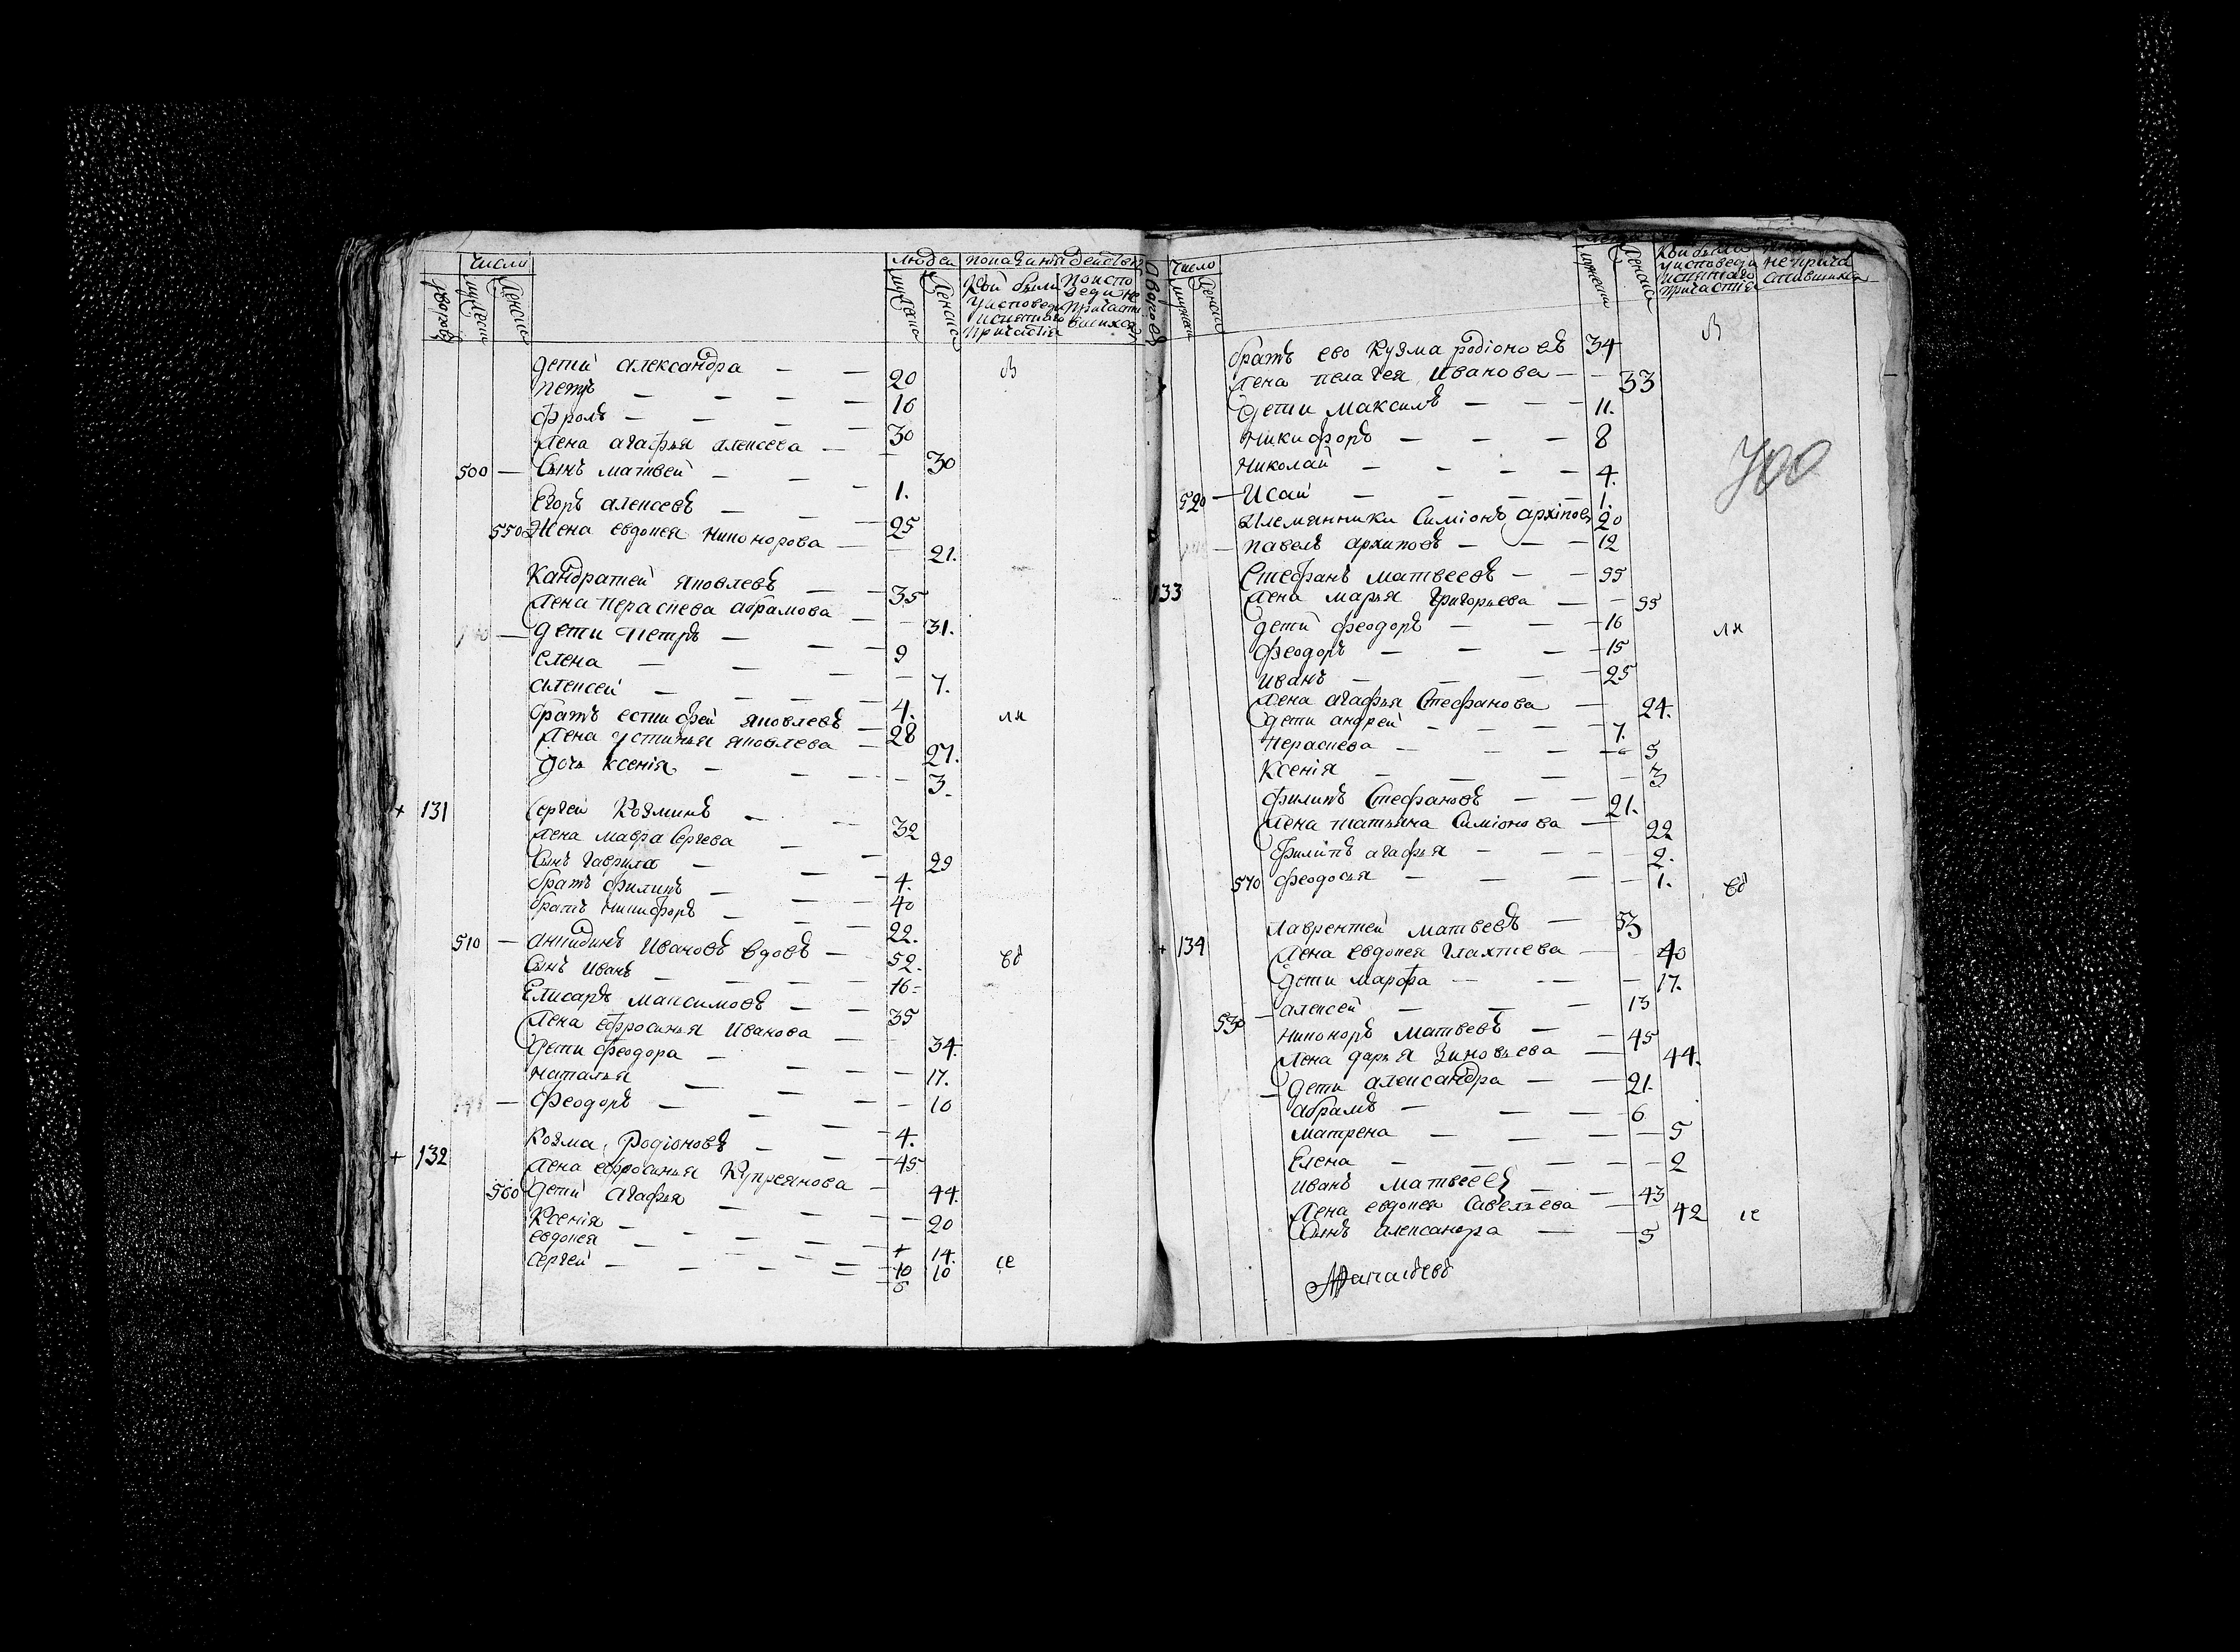 число
людей
мужеска
женска
дети александра — — 20
петръ — — — — 16
фролъ — — — — 30
жена агафья алексеева — — 30
500 — сынъ матвей — — — 1.
Егоръ алексеевъ — — — 25
550 Жена евдокея никонорова — — 21.
Кандратей яковлевъ — — 35
жена параскева абрамова — — 31.
— дети петръ — — — 9
елена — — — — 7.
алексей — — — — 4.
братъ естифей яковлевъ — 28
лн
жена устинья яковлева — 27.
дочь ксенія — — — — 3.
+ 131 Сергей Козминъ — — 32
жена мавра Сергева — — 29
сынъ гаврила — — — 4.
братъ филипъ — — — 40
братъ никифоръ — — — 22.
510 — Ивановъ вдовъ — 52.
сынъ иванъ — — — — 16
Елисаръ максимовъ — — 35
жена ефросинья Иванова — — 34.
дети феодора — — — — 17.
наталья — — — — 10
— феодоръ — — — — 4.
+ 132 Козма Родіоновъ — — — 45
жена ефросинья Купреянова — 44.
560 дети агафья — — — — 20
Ксенія — — — — + 14.
евдокея — — — — 10 10
сергей — — — —
се
число
женска
Кои были
у исповеди
и святаго
причастія
братъ ево Кузма родіоновъ 34
жена пелагея Иванова — — 33
дети максимъ — — — 11.
никифоръ — — — 8
николай — — — — 4.
700
520 — Исай — — — — 1.
племянники Симіонъ архіповъ 20
— павелъ архиповъ — — — 12
133 Стефанъ матвеевъ — — 55
жена марья Григорьева — — 55
дети феодоръ — — — 16
лн
феодоръ — — — — 15
иванъ — — — — 25
жена агафья Стефанова — 24.
дети андрей — — — — 7.
параскева — — — — 5
Ксенія — — — — 3
филипъ Стефановъ — — 21.
жена татьяна Симіонова — 22
агафья — — — — 2.
570 феодосья — — — — 1.
Лаврентей матвеевъ — 53
+ 134 жена евдокея — — 40
дети марфа — — — — 17.
530 — алексей — — — 13
никоноръ матвеевъ — — 45
жена дарья Зиновьева — 44.
— дети александра — — 21.
абрамъ — — — 6
матрена — — — — 5
Елена — — — — — 2
иванъ матвеевъ — — 43
жена евдокея Савельева — 42
се
сынъ александра — — 5